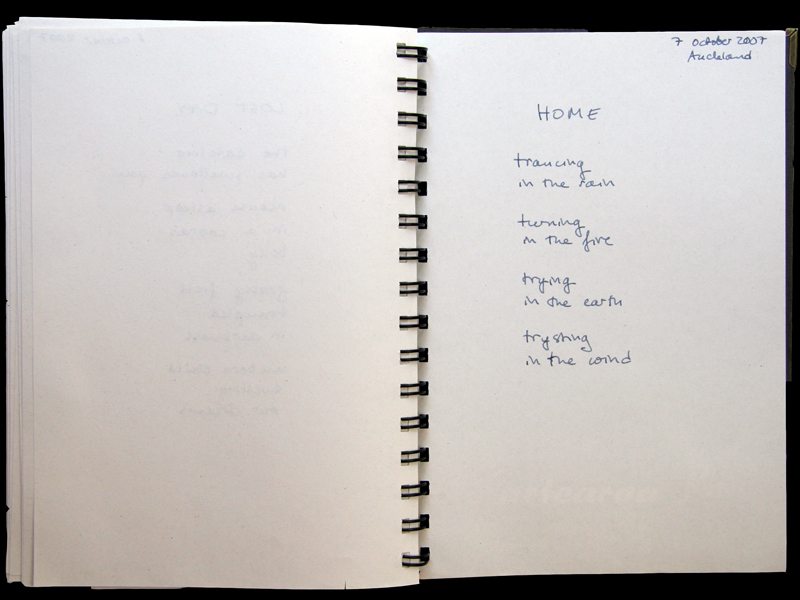 7 October 2007
Auckland
HOME
trancing
in the rain
turning
in the fire
trying
in the earth
trysting
in the wind